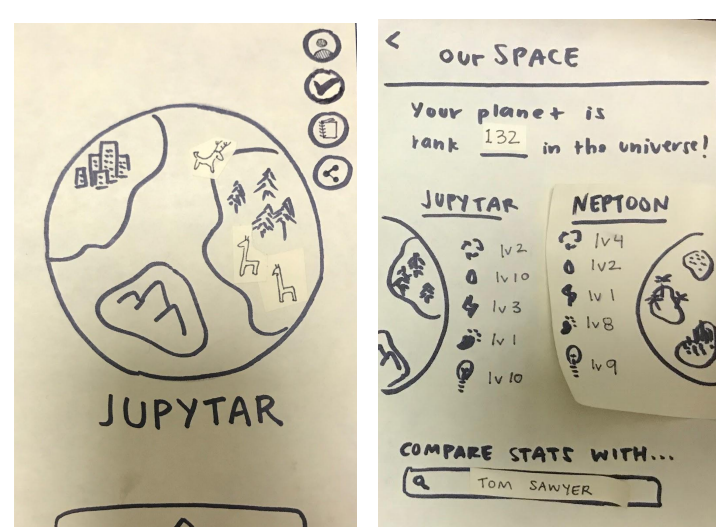 JUPYTAR
our SPACE
Your planet is
rank 132 in the universe!
JUPYTAR
lv 2
lv 10
lv 3
lv 1
lv 10
NEPTOON
lv 4
lv 2
lv 1
lv 8
lv 9
COMPARE STATS WITH...
TOM SAWYER